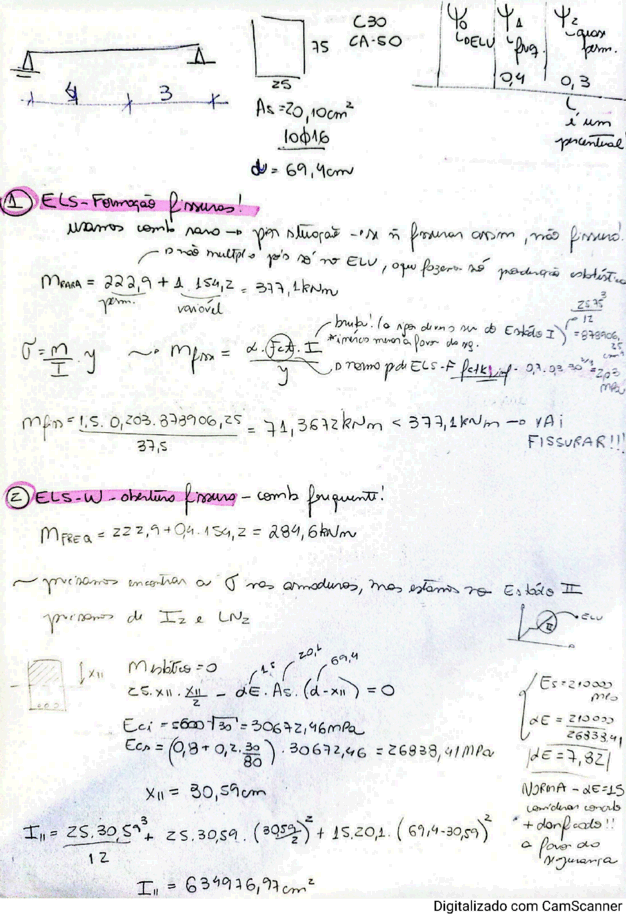 C30
CA-50
75
25
4 3
As = 20,10cm²
10ϕ16
d = 69,4cm
Ψ0 Ψ1 Ψ2
ELU freq. quase perm.
0,4 0,3
é um
percentual
① ELS-Formação fissuras!
usamos comb rara → pior situação → se ñ fissurar assim, não fissura!
não multiplica pois só no ELU, o que fazem só
MRARA = 222,9 + 1. 154,2 = 377,1kNm
perm. variável
σ = M/I . y ~ Mfiss = α.Fct.I / y
bruta!
Estádio I
25.75³/12 = 878906,25 cm⁴
a favor da seg.
ELS-F fctk,inf = 0,7.0,3.30^2/3 = 2,03 MPa
Mfiss = 1,5. 0,203. 878906,25 / 37,5 = 71,3672kNm < 377,1kNm → VAI
FISSURAR!!!
② ELS-W-abertura fissura - comb frequente!
MFREQ = 222,9+0,4.154,2 = 284,6kNm
~ precisamos encontrar a σ nas armaduras, mas estamos no Estádio II
precisamos de I2 e LN2
II ELU
XII
Mestático = 0
15 20,1 69,4
25.XII. XII/2 - αE. As. (d-XII) = 0
Eci = 5600 √30 = 30672,46MPa
Ecs = (0,8 + 0,2. 30/80) . 30672,46 = 26838,41MPa
Es = 210000
MPa
αE = 210000/26838,41
αE = 7,82
XII = 30,59cm
NORMA - αE=15
considerar concreto
+ danificado!!
a favor da
segurança
III = 25.30,59³/12 + 25.30,59. (30,59/2)² + 15.20,1. (69,4-30,59)²
III = 634976,97cm²
Digitalizado com CamScanner